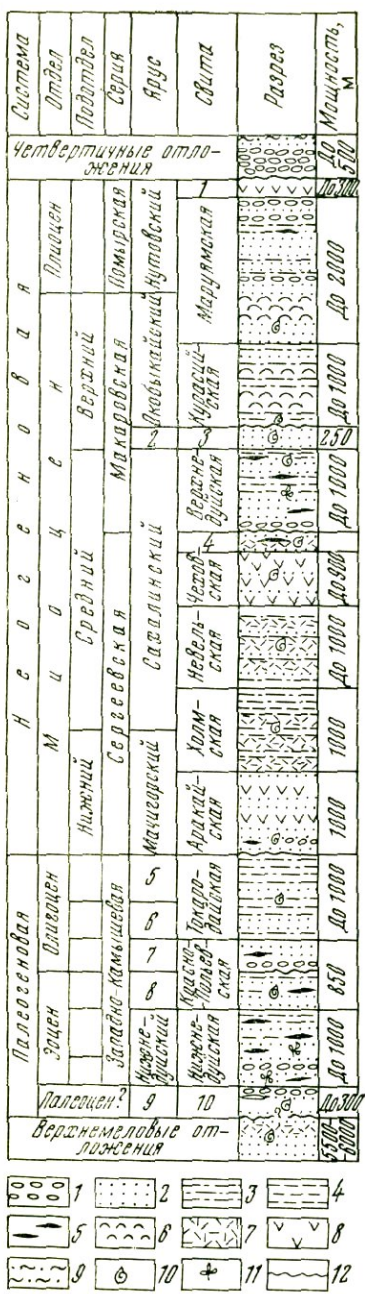 Система
Отдел
Подотдел
Серия
Ярус
Свита
Разрез
Мощность, м
Четвертичные отло-
жения
До 500
1
До 300
Неогеновая
Плиоцен
Помырская
Нутовский
Маруямская
До 2000
Миоцен
Верхний
Макаровская
Окобыкайский
Курасий-
ская
До 1000
2
3
250
Средний
Сергеевская
Сахалинский
Верхне-
дуйская
До 1000
4
Чехов-
ская
До 900
Невель-
ская
До 1000
Холм-
ская
1000
Нижний
Мачигорский
Аракай-
ская
1000
Палеогеновая
Олигоцен
Западно-Камышевая
5
Такара-
дайская
До 1000
6
7
Красно-
польев-
ская
850
Эоцен
8
Нижне-
дуйский
Нижне-
дуйская
До 1000
Палеоцен?
9
10
До 300
Верхнемеловые от-
ложения
5500-
6000
1 2 3 4
5 6 7 8
9 10 11 12